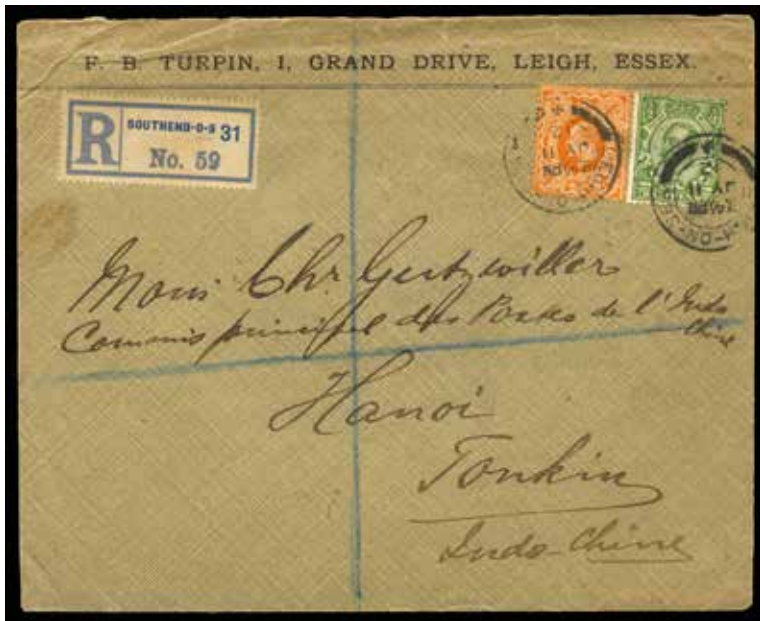 F. B. TURPIN, 1, GRAND DRIVE, LEIGH, ESSEX.
R SOUTHEND-O-S 31
No. 59
Mons Chr Gertzwiller
Commis principal des Postes de l'Indo
Chine
Hanoi
Tonkin
Indo-Chine